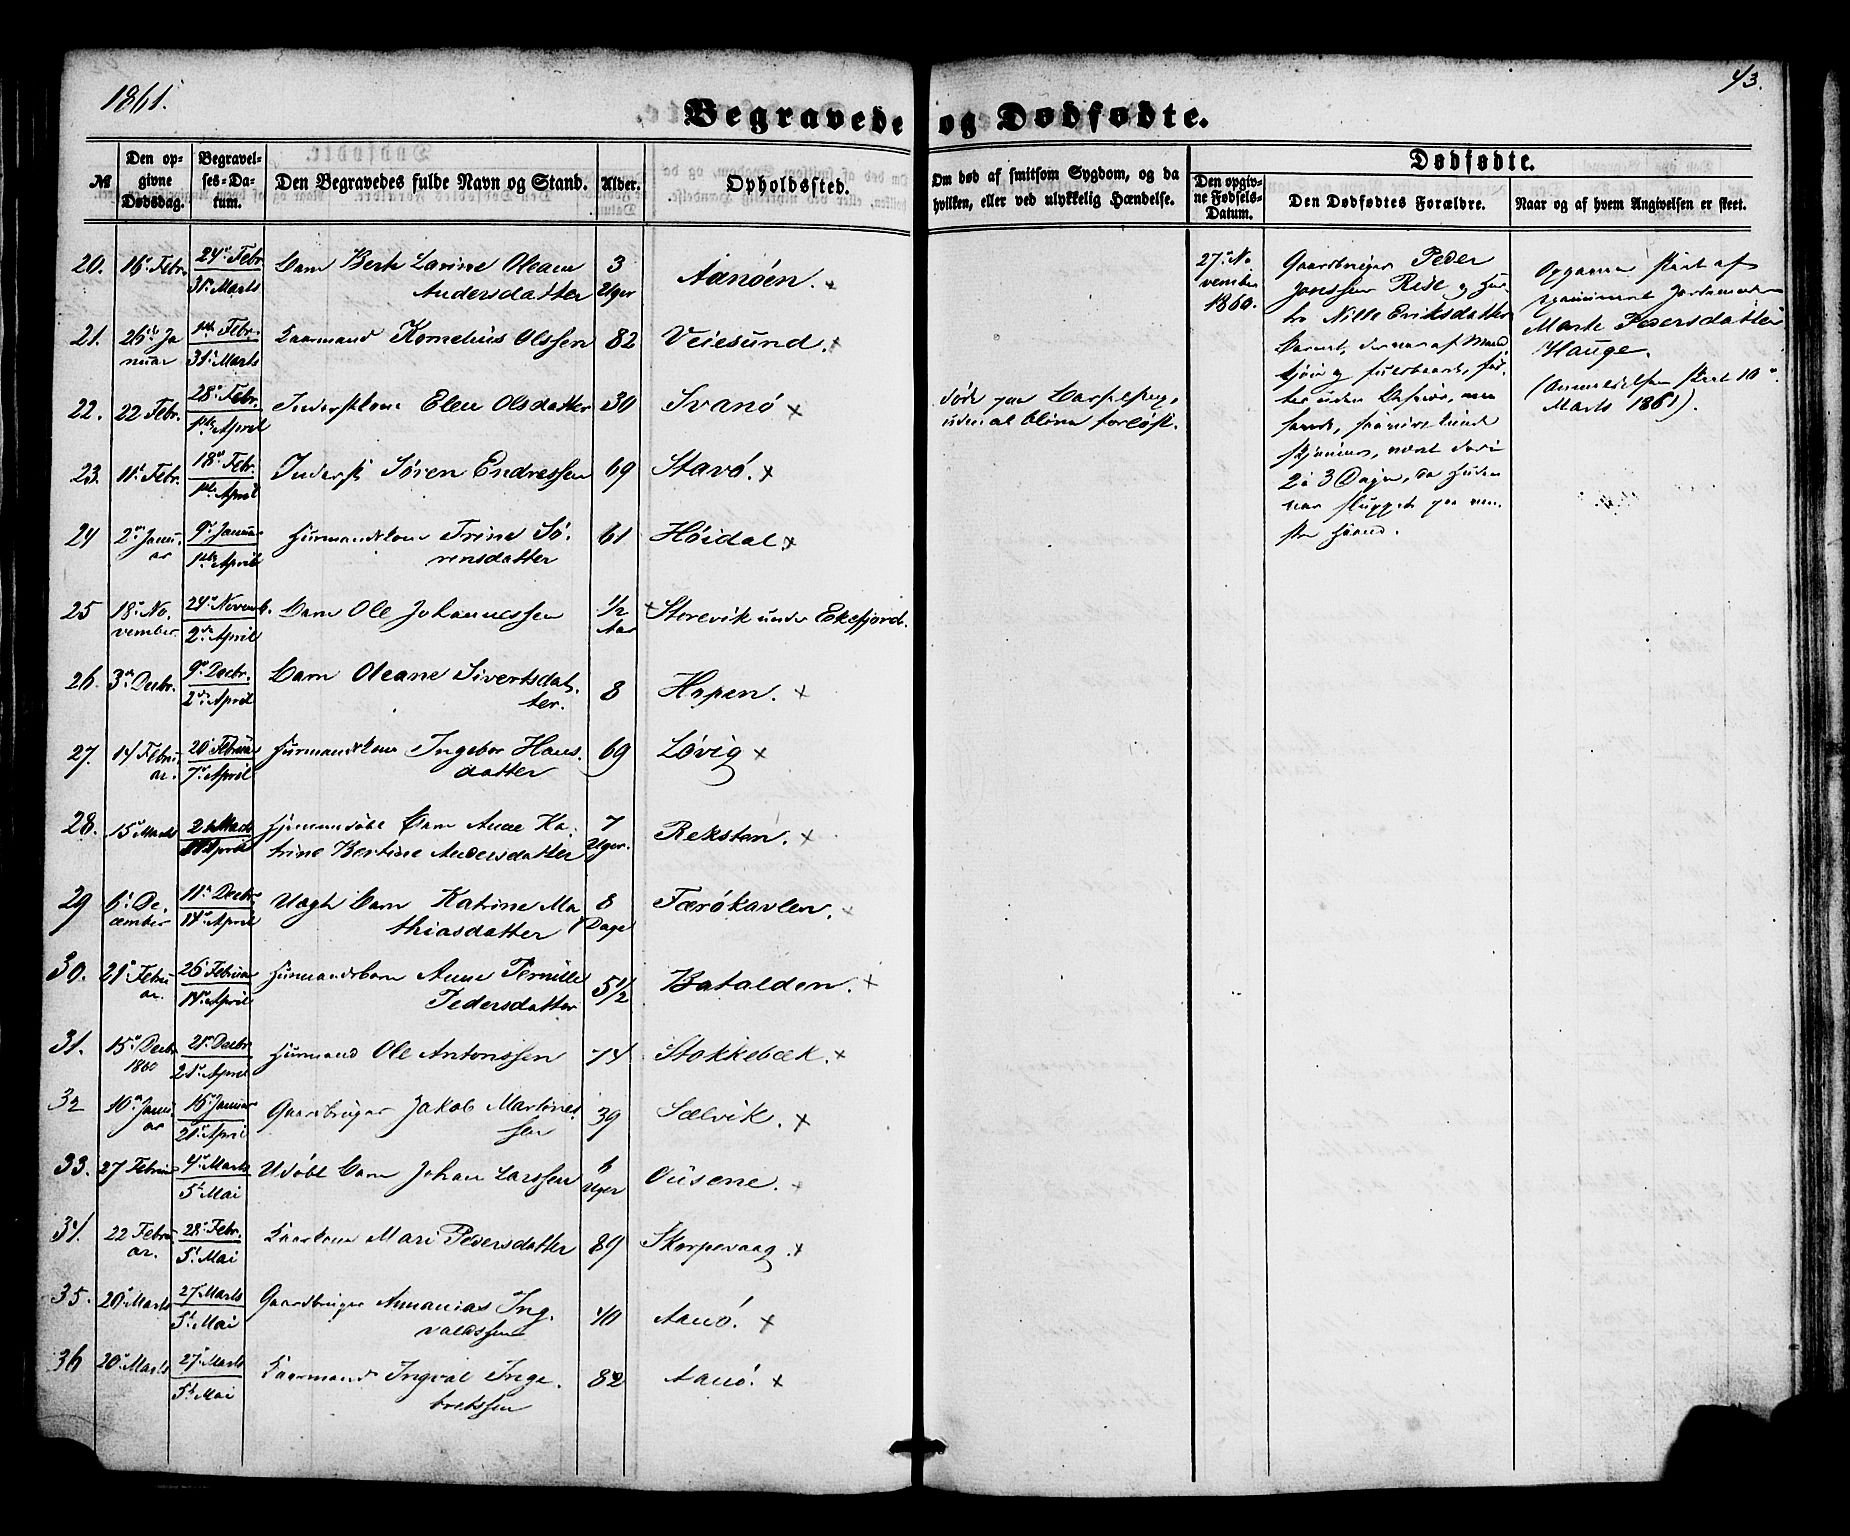 1861.
43.
Begravede og Dødfødte.
№
Den opgivne Dødsdag.
Begravelses-Datum.
Den Begravedes fulde Navn og Stand.
Alder.
Opholdssted.
Om død af smitsom Sygdom, og da hvilken, eller ved ulykkelig Hændelse.
Dødfødte.
Den opgivne Fødsels-Datum.
Den Dødfødtes Forældre.
Naar og af hvem Angivelsen er skeet.
20. 16 Febr. 24 Febr. 31 Marts Barn Berte Larine Oleane Andersdatter 3 Uger Aanøen.
21. 26 Januar Febr. 31 Marts Kaarmand Kornelius Olssen 82 Veiesund.
22. 22 Febr. 28 Febr. 1ste April Inderstkone Elen Olsdatter 30 Svanø
døde paa Barselseng, uden at blive forløst.
23. 11 Febr. 18 Febr. 1ste April Inderst Sören Endressen 69 Stavø.
24 2 Januar 9 Januar 1ste April Huusmandskone Trine Sörensdatter 61 Höidal
25 18 November 24 Novemb. 2den April Barn Ole Johannessen 1/2 Aar Storevik under Ekefjord.
26. 3 Decbr. 9 Decbr. 2den April Barn Oleane Sivertsdatter. 8 Hopen.
27. 14 Februar. 20 Februar 7 April Huusmandskone Ingebor Hansdatter 69 Løvig
28. 15 Marts Marts April Barn Anne Katrine Bertine Andersdatter 7 Uger. Reksten.
29 6 December 11 Decbr. 14 April Uægte Barn Katrine Mathiasdatter 8 Dage Færøkavlen.
30. 21 Februar. 26 Februar 14 April Huusmandsbarn Anne Pernille Pedersdatter 5 1/2 Batalden.
31. 15 Decbr 1860 21 Decbr 21 April Huusmand Ole Antonssen 74 Stokkebæk.
32 10 Januar 16 Januar 21 April Gaardbruger Jakob Martinessen 39 Sælvik.
33. 27 Februar 4 Marts 5 Mai Udøbt Barn Johan Larssen 6 Uger Ousene.
34. 22 Februar. 28 Febr. 5 Mai Kaarkone Mari Pedersdatter 89 Skorpevaag.
35. 20 Marts 27 Marts 5 Mai Gaardbruger Annanias Ingvaldssen 40 Aanø.
36 20 Marts 27 Marts 5 Mai Kaarmand Ingval Ingebretssen 82 Aanø.
27 November 1860.
Gaardbruger Peder
Jonssen Risе og Hustru Nille Eriksdatter
Barnet, der var af Mand
kjøn og fuldbaaret,
2 à 3 Dage, da Huden
var sluppet paa venstre Haand.
Opgaven skeet af
Jordemoder
Marte Pedersdatter
Hauge.
(Anmeldelsen skeet 10
Marts 1861).